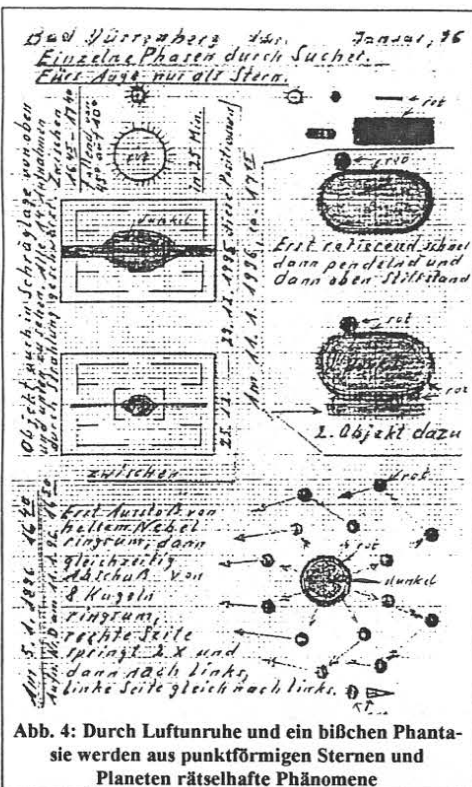 Bad Dürrenberg den. Januar, 96
Einzelne Phasen durch Sucher.
Fürs Auge nur als Stern.
Objekt auch in Schräglage von oben
und unten zu sehen. Alle 14 Aufnahmen
durch Strahlung geschwärzt. Zwischen
16 45 - 17 40
fallend von
45° auf 10°
in 25 Min.
rot
dunkel
25. 12. - 29. 12. 1995 diese Positionen
zwischen
rot
Am 11. 1. 1996, ca. 17
rot
Erst rotierend, schnel
dann pendelnd und
dann oben Stillstand
rot
rot
2. Objekt dazu
Am 5. 1. 1996 16 45
Aufn. N. D am 11. 1. 96, 16 50
Erst Ausstoß von
hellem Nebel
ringsum, dann
gleichzeitig
Abschuß von
8 Kugeln
ringsum,
rechte Seite
springt 2 x und
dann nach links,
linke Seite gleich nach links.
rot
rot
dunkel
Abb. 4: Durch Luftunruhe und ein bißchen Phanta-
sie werden aus punktförmigen Sternen und
Planeten rätselhafte Phänomene